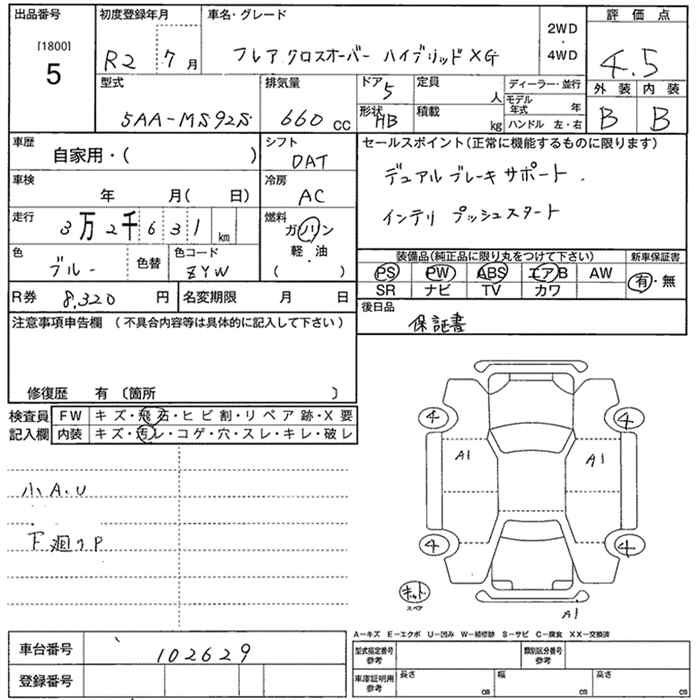 出品番号
[1800]
5
初度登録年月
R2 7月
車名・グレード
フレア クロスオーバー ハイブリッド XG
2WD
・
4WD
評価点
4.5
外装 内装
B B
型式
5AA-MS92S
排気量
660 cc
ドア 5
形状 HB
定員 人
積載 kg
ディーラー・並行
モデル年式 年
ハンドル 左・右
車歴
自家用・( )
シフト
DAT
セールスポイント(正常に機能するものに限ります)
デュアルブレーキサポート.
インテリ プッシュスタート
車検
年 月( 日)
冷房
AC
走行
3万2千631 km
燃料
ガソリン
軽・油
( )
色
ブルー
色替
色コード
ZYW
装備品(純正品に限り丸をつけて下さい)
新車保証書
PS PW ABS エアB AW
有・無
SR ナビ TV カワ
R券 8,320 円
名変期限 月 日
後日品
保証書
注意事項申告欄 (不具合内容等は具体的に記入して下さい)
修復歴 有 〔箇所 〕
検査員
記入欄
FW キズ・飛石・ヒビ割・リペア跡・X要
内装 キズ・汚レ・コゲ・穴・スレ・キレ・破レ
小A.U
下廻りP
4 4
A1 A1
4 4
キット
スペア
A1
A-キズ E-エクボ U-凹み W-補修跡 S-サビ C-腐食 XX-交換済
車台番号
102629
登録番号
型式指定番号
参考
類別区分番号
参考
車庫証明用
参考
長さ cm
幅 cm
高さ cm